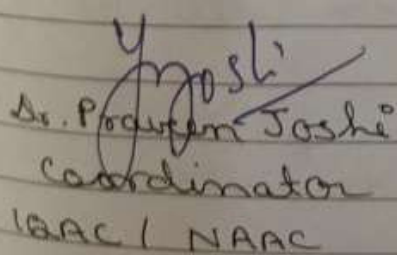 Joshi
Dr. Praveen Joshi
Coordinator
IQAC / NAAC